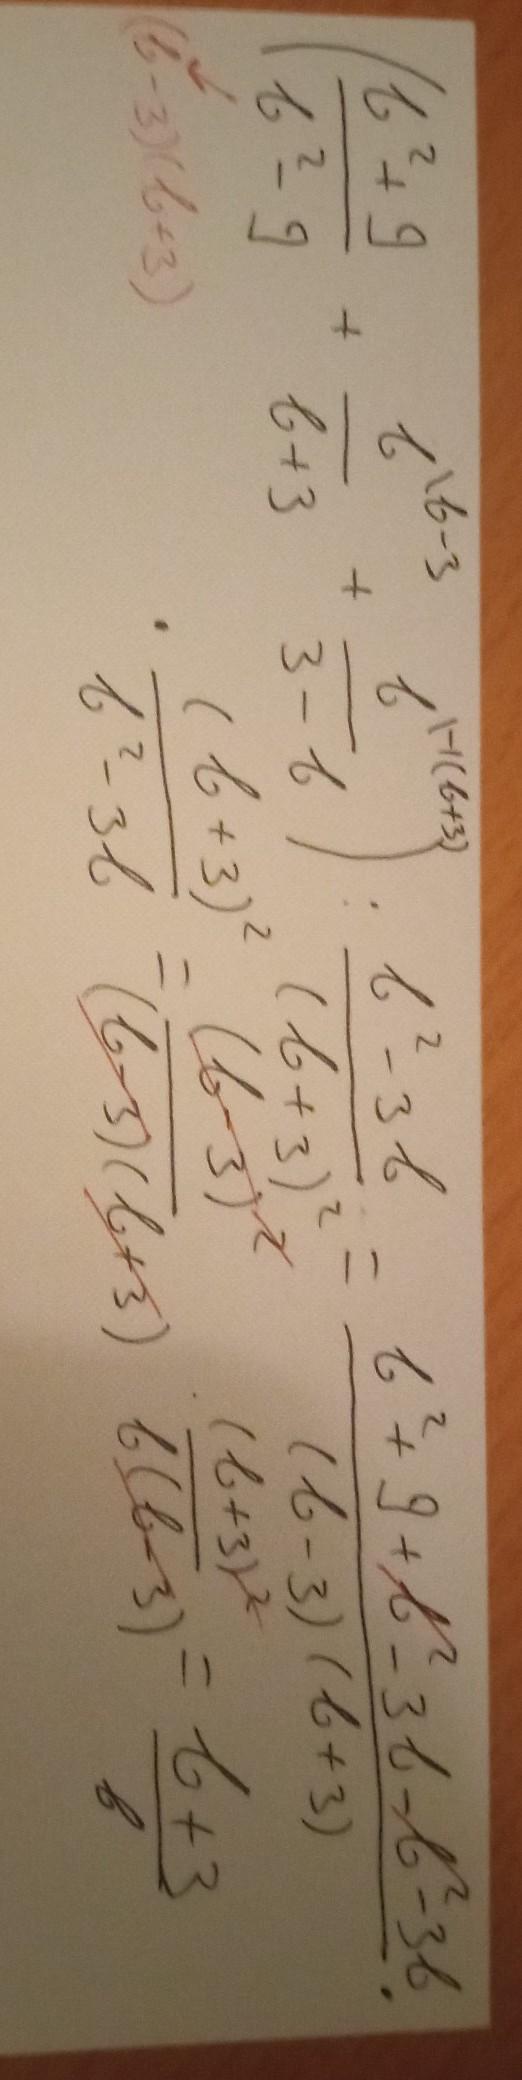 (b²+9/b²-9 + b\b-3/b+3 + b\-1(b+3)/3-b) : b²-3b/(b+3)² = b²+9+b²-3b-b²-3b/(b-3)(b+3) ·
(b-3)(b+3)
· (b+3)²/b²-3b = (b-3)²/(b-3)(b+3) · (b+3)²/b(b-3) = b+3/b